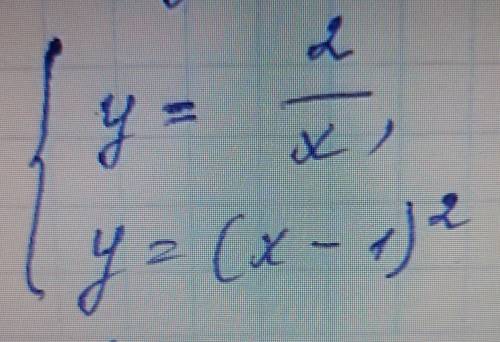 y = 2/x,
y = (x - 1)²